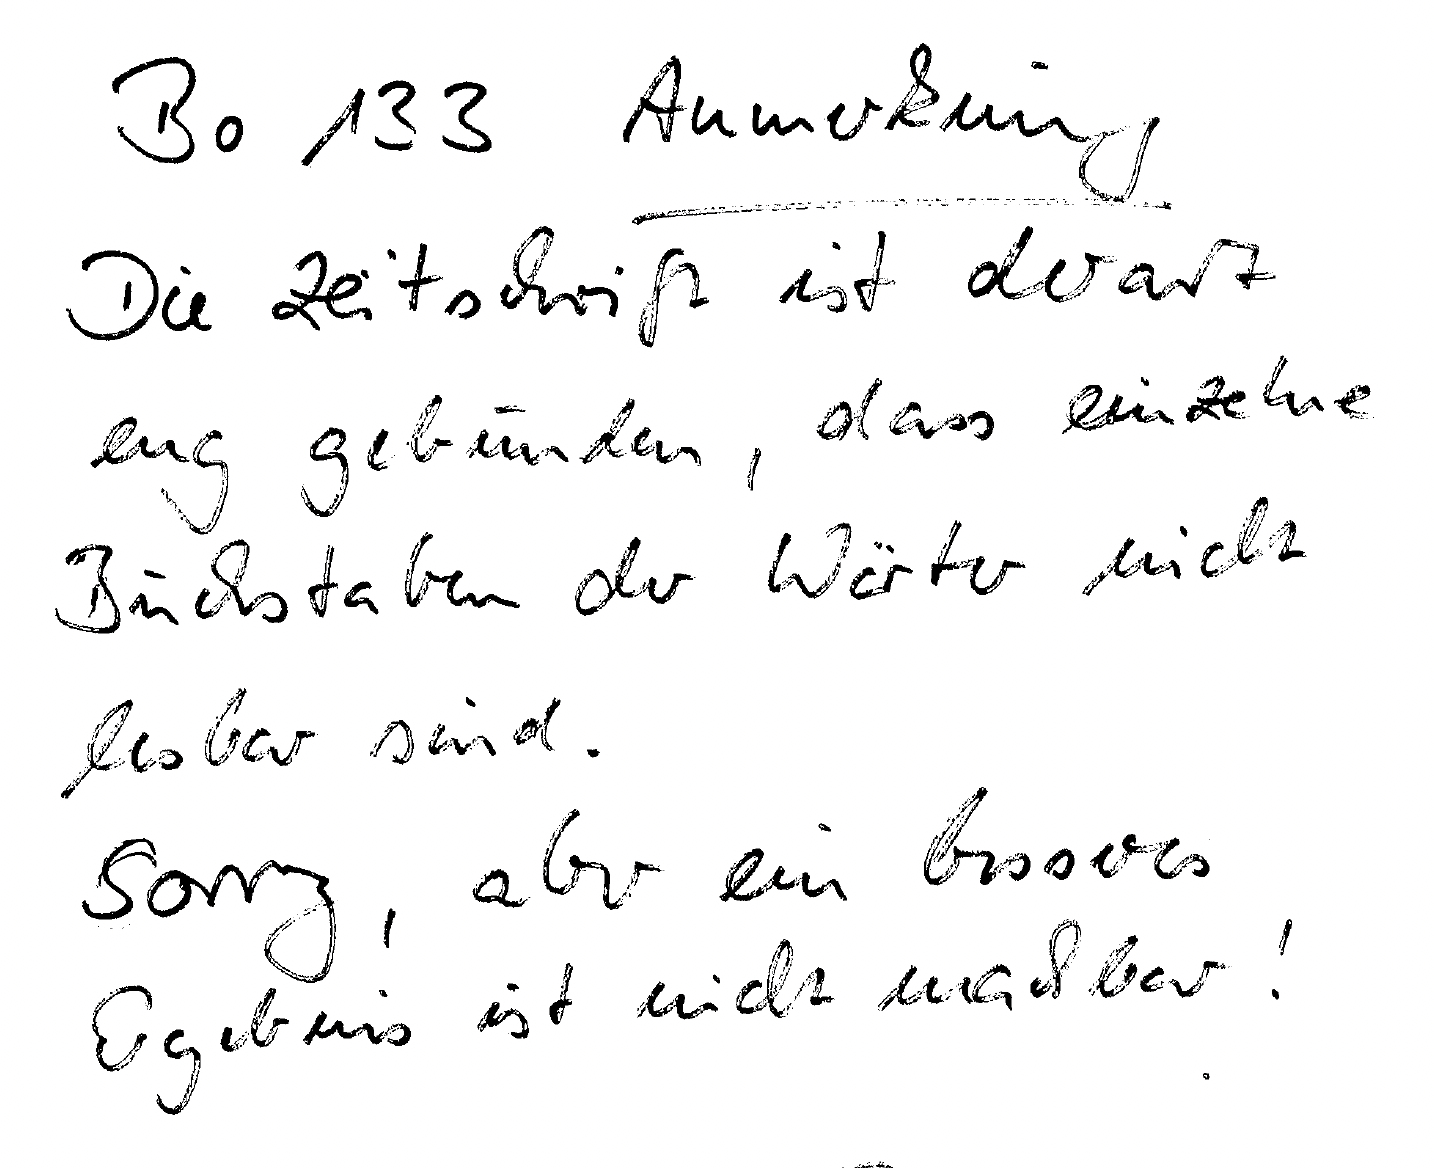 Bo 133 Anmerkung
Die Zeitschrift ist derart
eng gebunden, dass einzelne
Buchstaben der Wörter nicht
lesbar sind.
Sorry, aber ein besseres
Ergebnis ist nicht machbar!